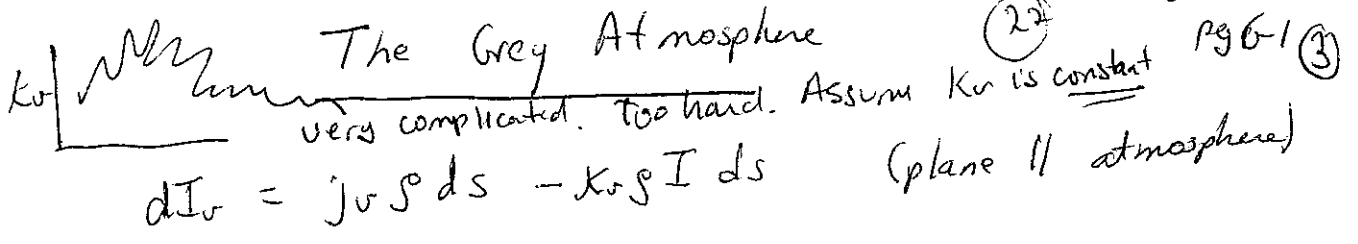 The Grey Atmosphere 22 pg G-1 3
κν very complicated. Too hard. Assume κν is constant
dIν = jν ρ ds − κν ρ I ds (plane // atmosphere)